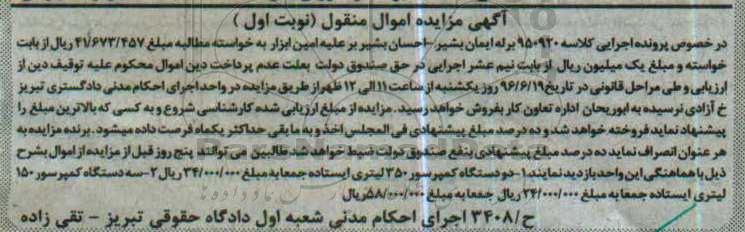 آگهی مزایده اموال منقول (نوبت اول)
در خصوص پرونده اجرایی کلاسه ۹۵۰۹۲۰ برله ایمان بشیر-احسان بشیر بر علیه امین ابزار به خواسته مطالبه مبلغ ۴۱/۶۷۳/۴۵۷ ریال از بابت
خواسته و مبلغ یک میلیون ریال از بابت نیم عشر اجرایی در حق صندوق دولت بعلت عدم پرداخت دین اموال محکوم علیه توقیف دین از
ارزیابی و طی مراحل قانونی در تاریخ ۹۶/۶/۱۹ روز یکشنبه از ساعت ۱۱ الی ۱۲ ظهر از طریق مزایده در واحد اجرای احکام مدنی دادگستری تبریز
خ آزادی نرسیده به ابوریحان اداره تعاون کار بفروش خواهد رسید. مزایده از مبلغ ارزیابی شده کارشناسی شروع و به کسی که بالاترین مبلغ را
پیشنهاد نماید فروخته خواهد شد و ده درصد مبلغ پیشنهادی فی المجلس اخذ و به مابقی حداکثر یکماه فرصت داده میشود. برنده مزایده به
هر عنوان انصراف نماید ده درصد مبلغ پیشنهادی بنفع صندوق دولت ضبط خواهد شد طالبین می توانند پنج روز قبل از مزایده از اموال بشرح
ذیل با هماهنگی این واحد بازدید نمایند ۱-دو دستگاه کمپرسور ۳۵۰ لیتری ایستاده جمعا به مبلغ ۳۴/۰۰۰/۰۰۰ ریال ۲-سه دستگاه کمپرسور ۱۵۰
لیتری ایستاده جمعا به مبلغ ۲۴/۰۰۰/۰۰۰ ریال جمعا به مبلغ ۵۸/۰۰۰/۰۰۰ ریال
ح/۳۴۰۸ اجرای احکام مدنی شعبه اول دادگاه حقوقی تبریز - تقی زاده